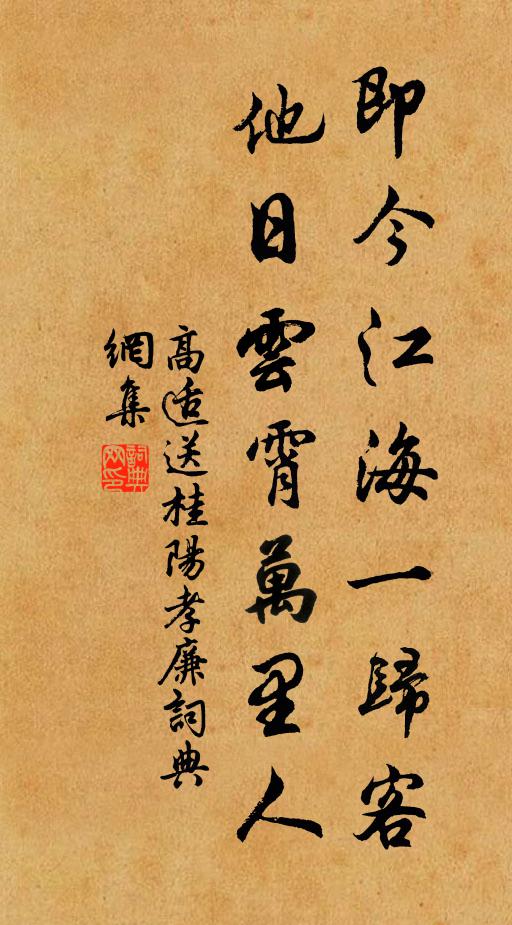 即今江海一歸客
他日雲霄萬里人
高适送桂陽孝廉詞典
網集
詞典
网印